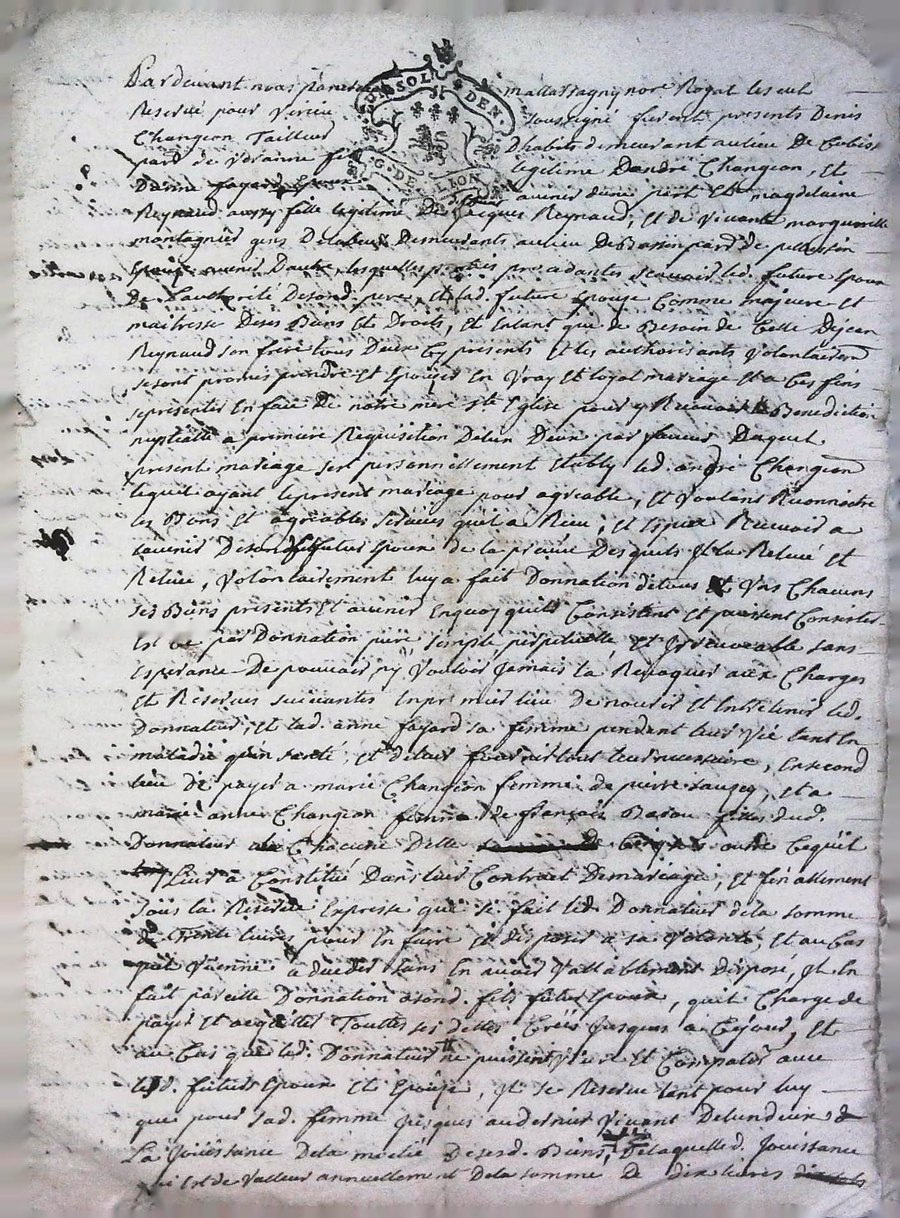 Pardevant nous mallassagny nore Royal les cul
UN SOL 8 DEN
Reservé pour Virieu soussigné furent presents Denis
Changeon Tailleur Dhabits demeurant au lieu De
G. DE LION
legitime Dandré Changeon, et
Danne fayard avenir dune part Et magdelaine
Reynaud aussy fille legitime De Jacques Reynaud, et de Vivante margueritte
montagnier gens Delabeur Demeurants au lieu De par de pellussin
Epouse avenir Dautre, lesquelles parties procedantes scavoir led. futur Epoux
De l'authorité Desond. pere, et lad. future Epouse Comme majeure et
maitresse Deses Biens Et Droits, et entant que de Besoin de Celle Dejean
Reynaud son frere tous Deux Cy presents et les authorisants Volontairem
se sont promis prendre et Epouser En Vray et loyal mariage et a Ces fins
se presenter En face De notre mere Ste Eglise pour y Recevoir la Benediction
nuptialle a premiere Requisition Delun Deux par faveur Duquel
present mariage sest personnellement Etably led. andré Changeon
lequel ayant le present mariage pour agreable, et Voulant Reconnoitre
les Bons et agreables services quil a Receu, et Espere Recevoir a
lavenir Desond. fils futur Epoux de la preuve Desquels il la Relevé et
Releve, Volontairement luy a fait Donnation de tous Et Uns Chacuns
ses Biens presents et avenir En quoy quils Consistent et puissent Consister
Et ce par Donnation pure, simple, perpetuelle, et Irrevocable sans
Esperance De pouvoir, ny Vouloir Jamais la Revoquer aux Charges
et Reserves suivantes En premier lieu De nourir et Entretenir led.
Donnateur, et lad. anne fayard sa femme pendant leur Vie tant En
maladie qu'en santé, et deleur fournir tout leur necessaire, En second
lieu De payer a marie Changeon femme de pierre sauzey, et a
marie anne Changeon femme de françois Badou filles dud.
Donnateur a Chacune Delle outre Ce quil
leur a Constitué Dans leur Contract Demariage, et finallement
sous la Reserve Expresse que se fait led. Donnateur dela somme
de Trente livres pour En faire et disposer a sa Volonté, et au Cas
quil Vienne a deceder sans En avoir Vallablement disposé, il En
fait pareille Donnation asond. fils futur Epoux, quil Charge de
payer et acquitter Touttes ses dettes Créés Jusques a Cejour, et
au Cas que led. Donnateur ne puissent Vivre et Compatir avec
led. futur Epoux et Epouse, il se Reserve tant pour luy
que pour sad. femme Jusques au dernier Vivant Delundeux
La Jouissance Dela moitié Desesd. Biens, Delaquelled. Jouissance
Est de Valleur annuellement Dela somme De dix livres